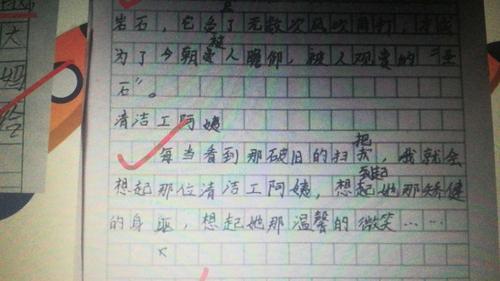 岩石，它 了无数次风吹雨打，才成
被
为了今朝 人瞻仰，被人观赏的“
石”。
清洁工阿姨
把
每当看到那破旧的扫 ，我就会
想起
想起那位清洁工阿姨，想起她那矫健
的身 ，想起她那温馨的微笑……
大
妈